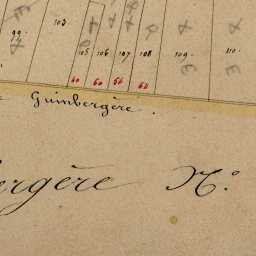 99.
103
105 106 107 108 109. 110.
60 60 56 62
Guimbergère.
ergère N.°